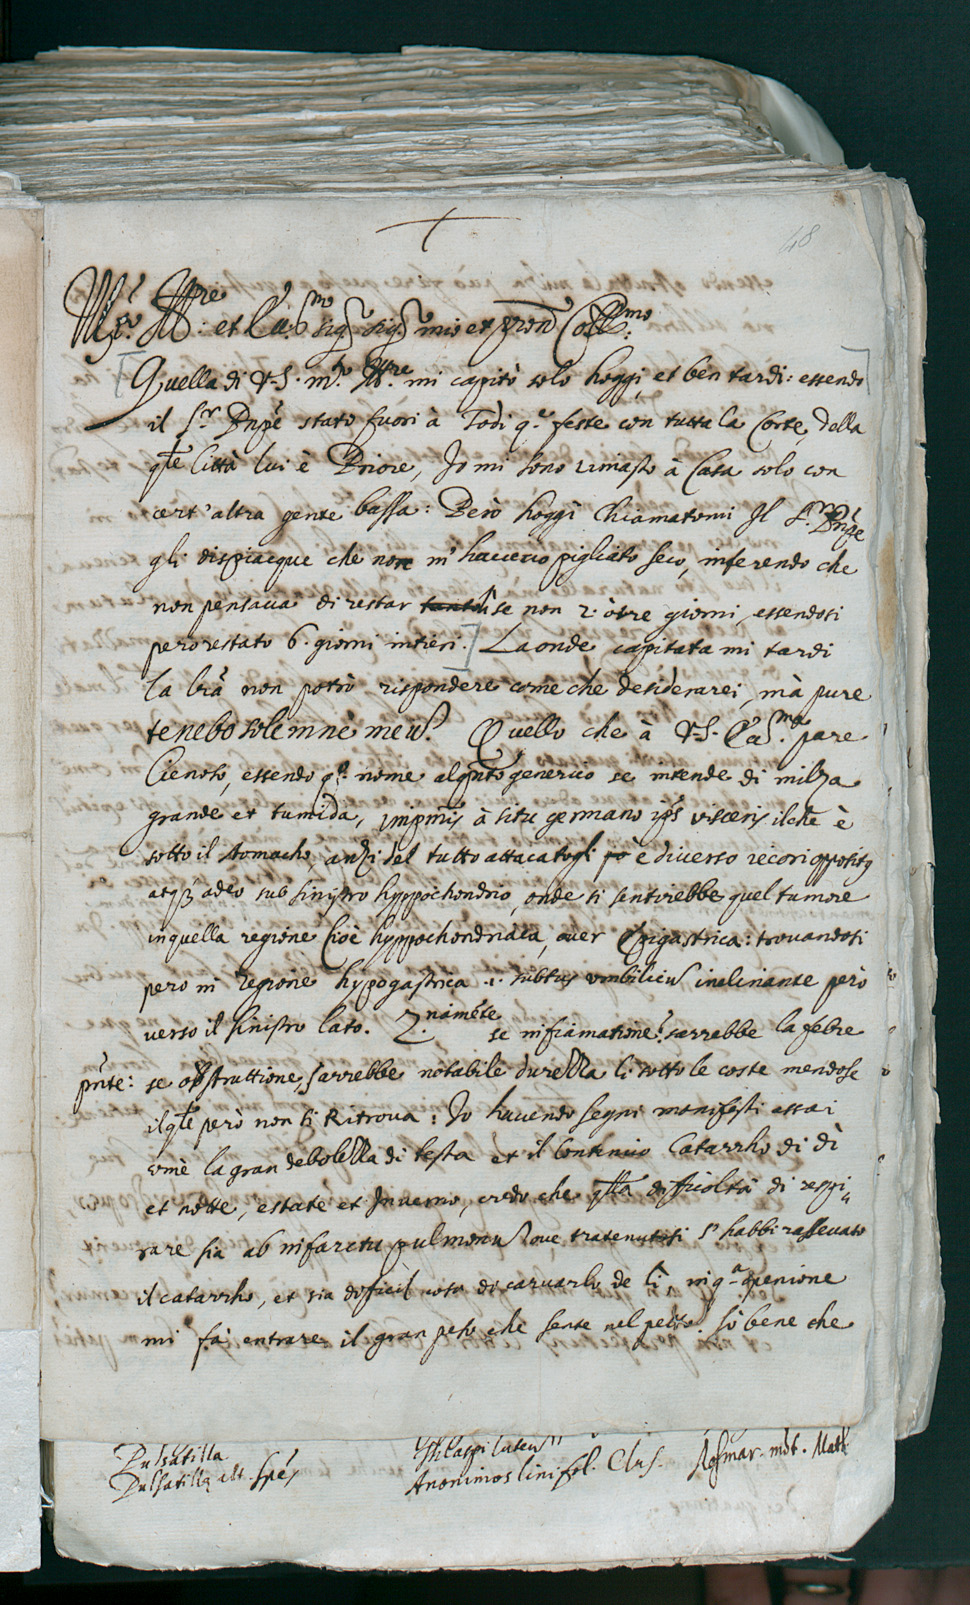 48
Mto. Illre: et Ecc:mo sigr sigr mio et pron Coll:mo
Quella di V.S. mto. Illre. mi capitò solo hoggi et ben tardi: essendo
il Sr. Dnpe stato fuori à Todi qe. feste con tutta la Corte, della
qle Città lui è Priore, Io mi sono rimasto à Casa solo con
cert'altra gente bassa: Però hoggi chiamatomi Il Sr. Dnpe
gli dispiacque che non m'havevo pigliato seco, inferendo che
non pensava di restar se non 2. ò tre giorni, essendosi
pero restato 6. giorni intieri. Laonde capitata mi tardi
la lrã non potrò rispondere come che desiderarei, mà pure
tenebo solemne meũ. Quello che à V.S. Ecc.ma pare
Cienoso, essendo qo. nome alqnto generico se intende di milza
grande et tumida, inprimis à situ germano ipsius visceris ilche è
sotto il stomacho, anzi del tutto attacatogli è diverso iecori oppositq
atqz adeo sub sinistro hyppochondrio, onde si sentirebbe quel tumore
in quella regione Cioè hyppochondriaca, over Epigastrica: trovandosi
pero in regione hypogastrica .i. subtus umbilicũ inclinante però
verso il sinistro lato. 2.namẽte se infiamatione sarrebbe la febre
pnte: se obstruttione, sarrebbe notabile durezza li sotto le coste mendose
il qle però non si Ritrova: Io havendo segni manifesti assai
come la gran debolezza di testa et il Continuo Catarrho di dì
et notte, estate et Inverno, credo che qlla difficoltà di respi=
rare sia ab infarctu pulmonũ ove tratenutosi habbi rassevato
il catarrho, et sia dificil cosa di carvarlo de li, in qa. openione
mi fa entrare il gran peso che sente nel petto. Sò bene che
Pulsatilla
Pulsatilla alt. spẽs
Thlaspi luteũ
Anonimos lini fol. Clus.
Rosmar. Math